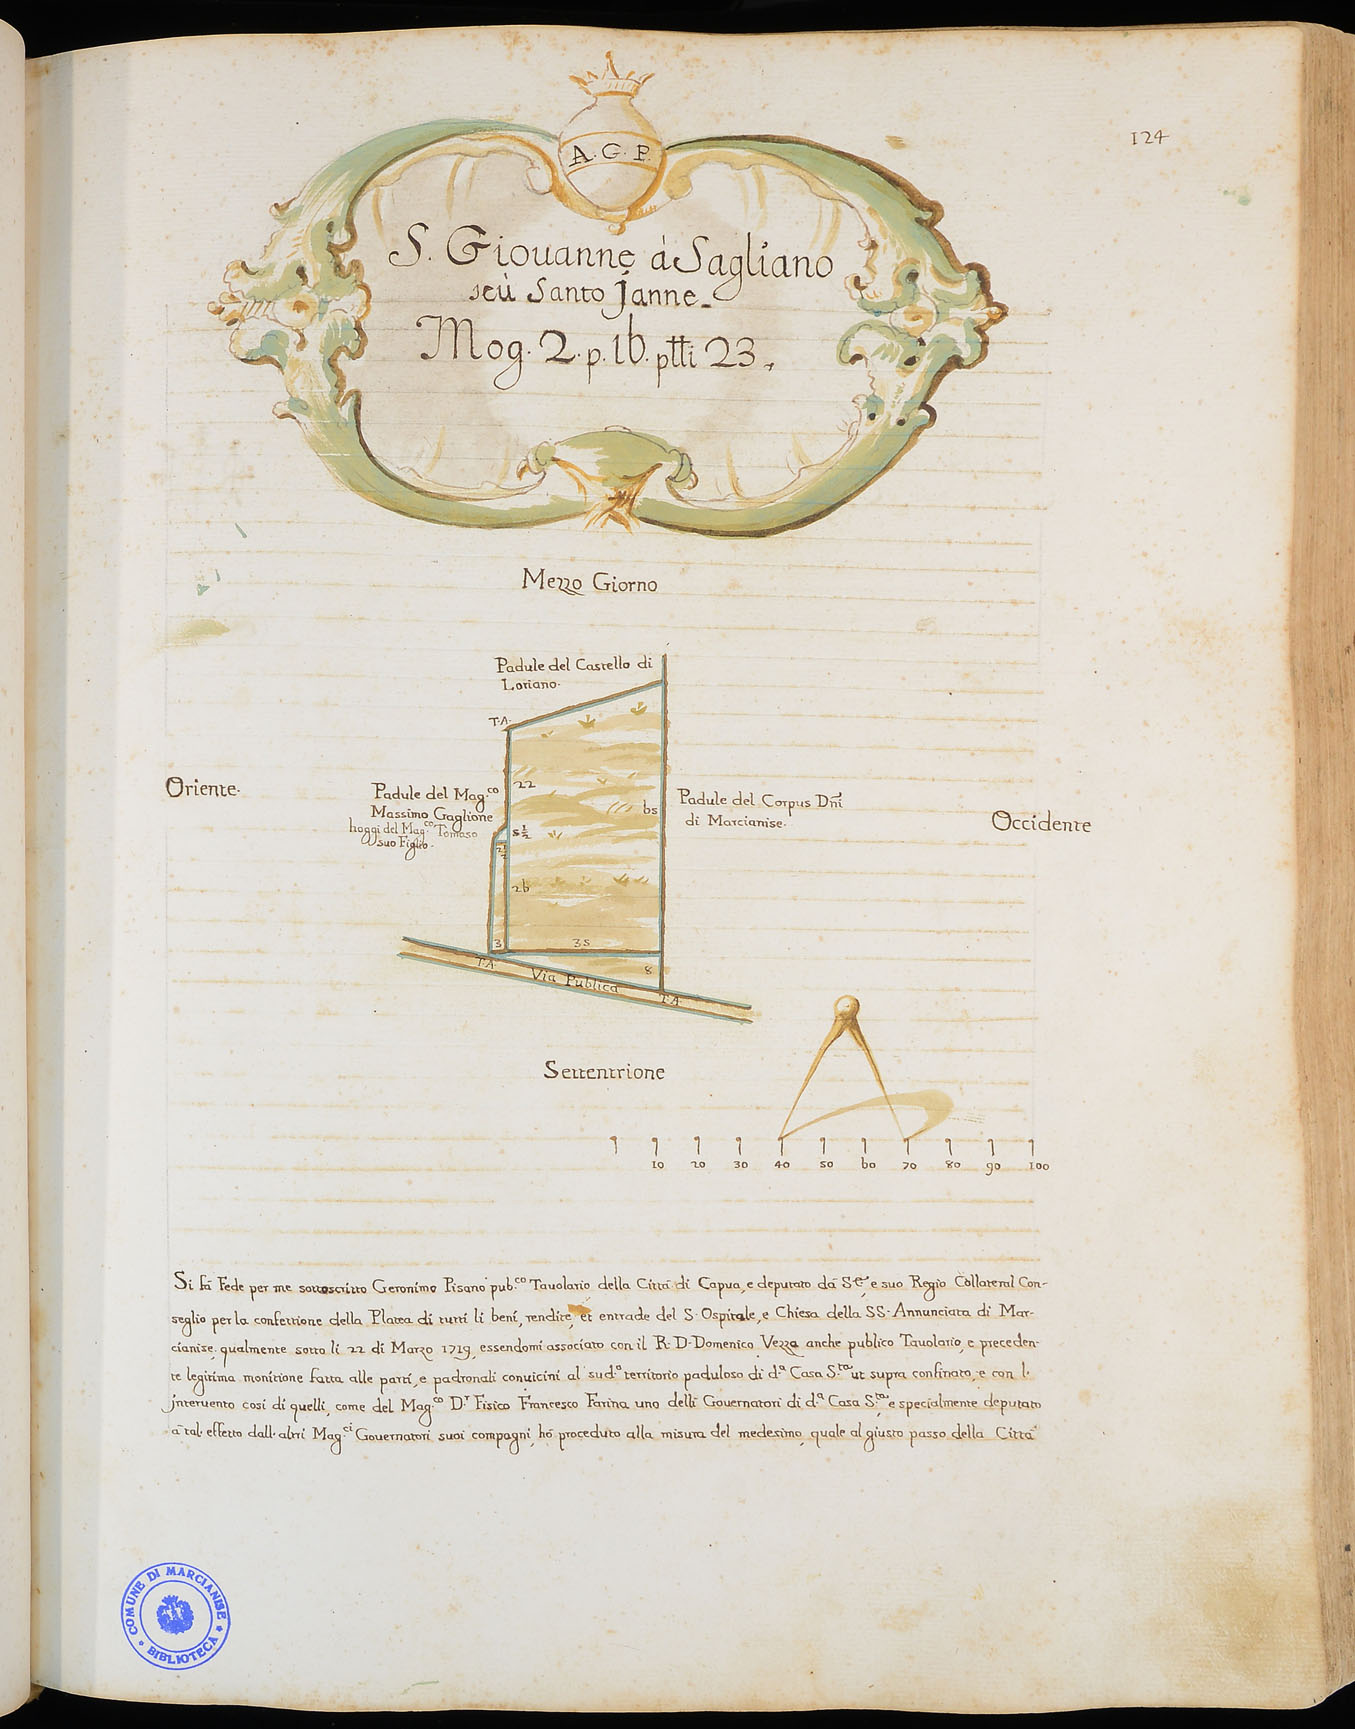 124
A.G.P.
S. Giouanne à Sagliano
seù Santo Janne.
Mog. 2. p. 16. ptti 23.
Mezzo Giorno
Padule del Castello di
Loriano.
T.A.
Oriente.
Padule del Mag.co
Massimo Gaglione
hoggi del Mag.co Tomaso
suo Figlio.
22
5½
2½
26
65
Padule del Corpus Dñi
di Marcianise.
Occidente
3
35
8
T.A.
Via Publica
T.A.
Settentrione
10 20 30 40 50 60 70 80 90 100
Si fà Fede per me sottoscritto Geronimo Pisano pub.co Tauolario della Città di Capua, e deputato dà S.E., e suo Regio Collateral Con-
seglio per la confettione della Platea di tutti li beni, rendite, et entrade del S. Ospitale, e Chiesa della SS. Annunciata di Mar-
cianise, qualmente sotto li 22 di Marzo 1719, essendomi associato con il R. D. Domenico Vezza anche publico Tauolario, e preceden-
te legitima monitione fatta alle parti, e padronali conuicini al sud.o territorio paduloso di d.a Casa S.ta ut supra confinato, e con l'
interuento cosi di quelli, come del Mag.co D.r Fisico Francesco Farina uno delli Gouernatori di d.a Casa S.ta, e specialmente deputato
à tal effetto dall'altri Mag.ci Gouernatori suoi compagni, hò proceduto alla misura del medesimo, quale al giusto passo della Città
COMUNE DI MARCIANISE
* BIBLIOTECA *